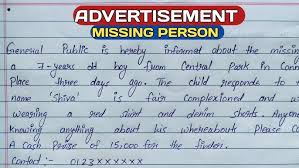 ADVERTISEMENT
MISSING PERSON
General Public is hereby informed about the missing
a 7-years old boy from Central Park in Conn
Place three days ago. The child responds to
name 'Shiva' is fair complexioned and w
wearing a red shirt and denim shorts. Anyone
knowing anything about his whereabouts please Co
A Cash Praise of 15,000 for the finder.
Contact:- 0123XXXXXX